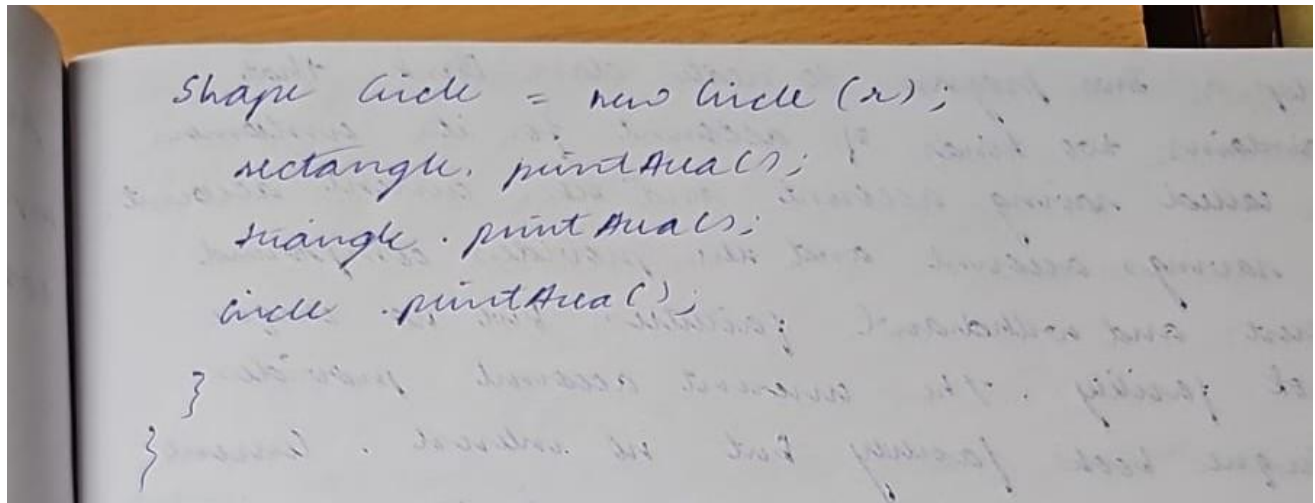 Shape Circle = new Circle (r);
rectangle. printArea();
triangle. printArea();
circle .printArea();
}
}